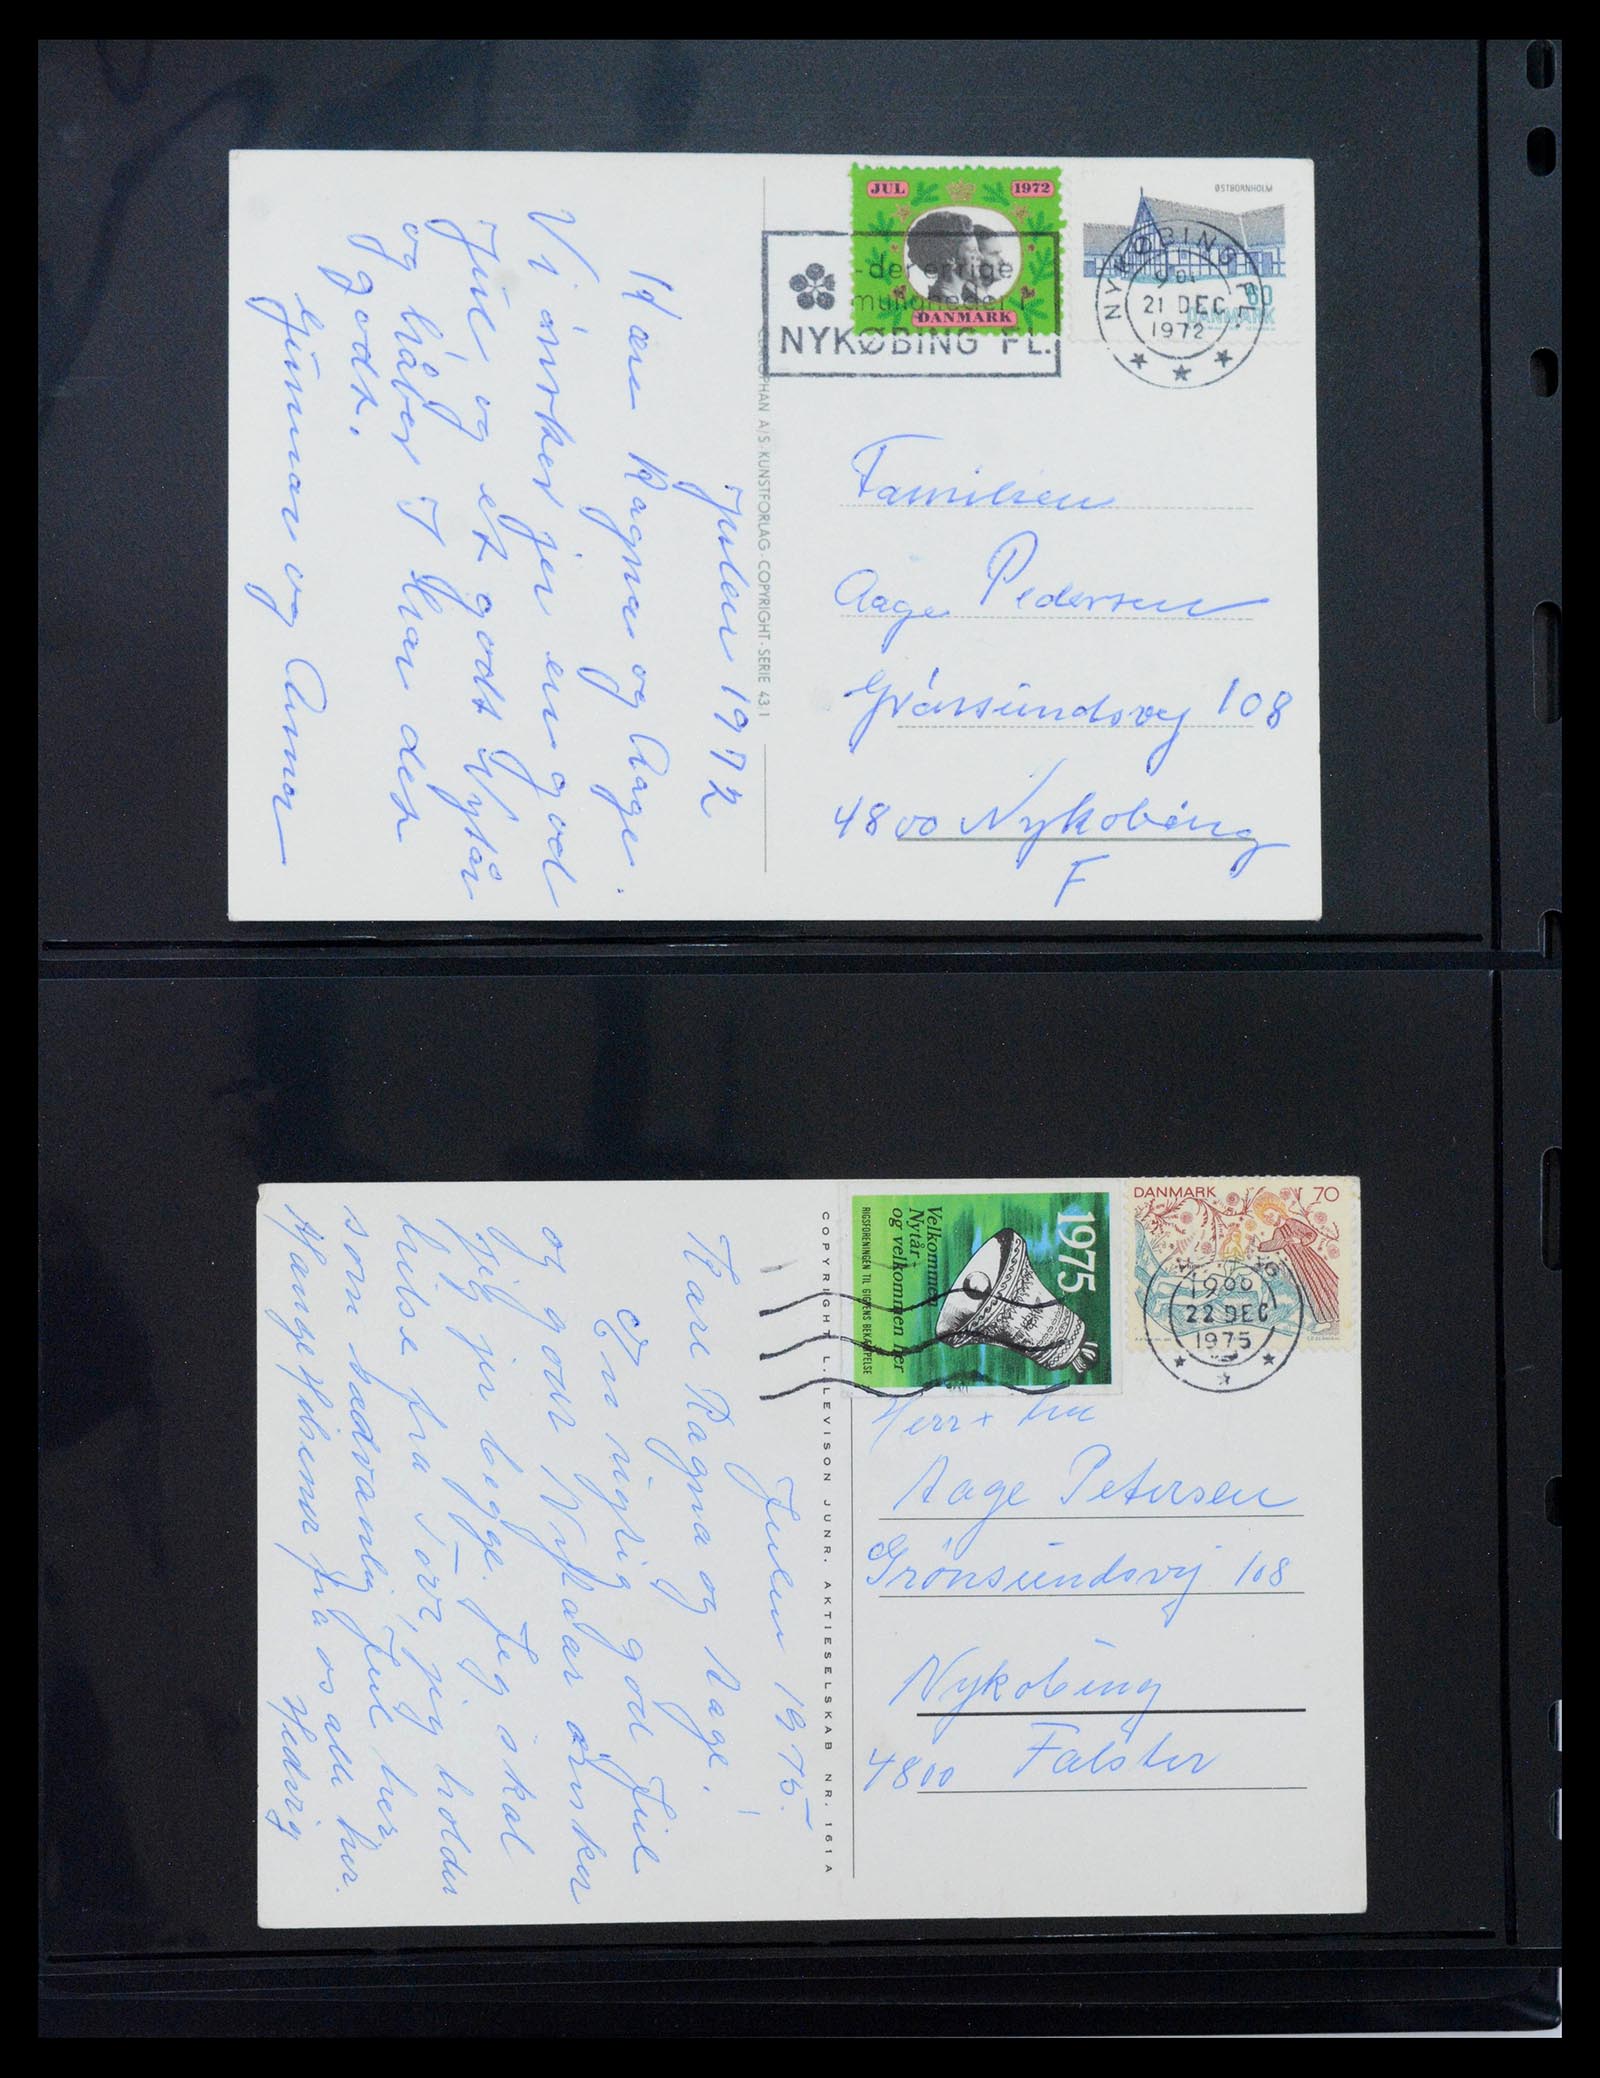 JUL 1972
DANMARK
ØSTBORNHOLM
60
DANMARK
NYKØBING FL.
21 DEC
1972
- der er rige
muligheder i
NYKØBING FL.
Familien
Aage Pedersen
Grønsundsvej 108
4800 Nykøbing
F
A/S · KUNSTFORLAG · COPYRIGHT · SERIE 43.1
Julen 1972
Kære Ragna og Aage.
Vi ønsker jer en god
Jul og et godt Nytår
og håber I har det
godt.
Gunnar og Anna
1975
Velkommen
Nytår -
og velkommen her
RIGSFORENINGEN TIL GIGTENS BEKÆMPELSE
DANMARK 70
22 DEC
1975
Herr + Fru
Aage Petersen
Grønsundsvej 108
Nykøbing
4800 Falster
COPYRIGHT L. LEVISON JUNR. AKTIESELSKAB NR. 161 A
Julen 1975.
Kære Ragna og Aage!
En rigtig god Jul
og godt Nytaar ønsker
jeg jer begge. Jeg skal
hilse fra Tove, jeg holder
som sædvanlig Jul her
Mange Hilsener fra os alle her.
Hedvig